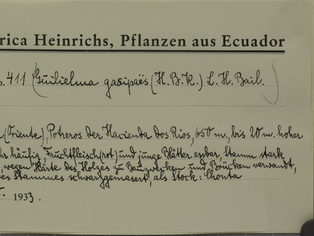 rica Heinrichs, Pflanzen aus Ecuador
. 411 (Guilielma gasipaës (H.B.K.) L.H. Bail.)
(Oriente), Potreros der Hacienda dos Rios, 650 m, bis 20 m hoher
häufig, Fruchtfleisch (rot) und junge Blätter essbar, Stamm stark
, wegen Härte des Holzes zu Bauzwecken und Brücken verwandt,
es Stammes schwarzgemasert, als Stock: Chonta
. 1933.